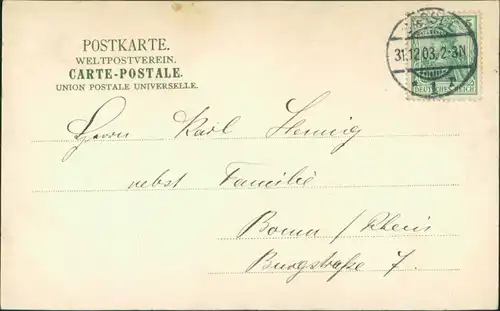 POSTKARTE.
WELTPOSTVEREIN.
CARTE-POSTALE.
UNION POSTALE UNIVERSELLE.
31.12.03. 2-3N
1
5
DEUTSCHES REICH
Herrn Karl Hennig
nebst Familie
Bonn / Rhein
Burgstraße 7.